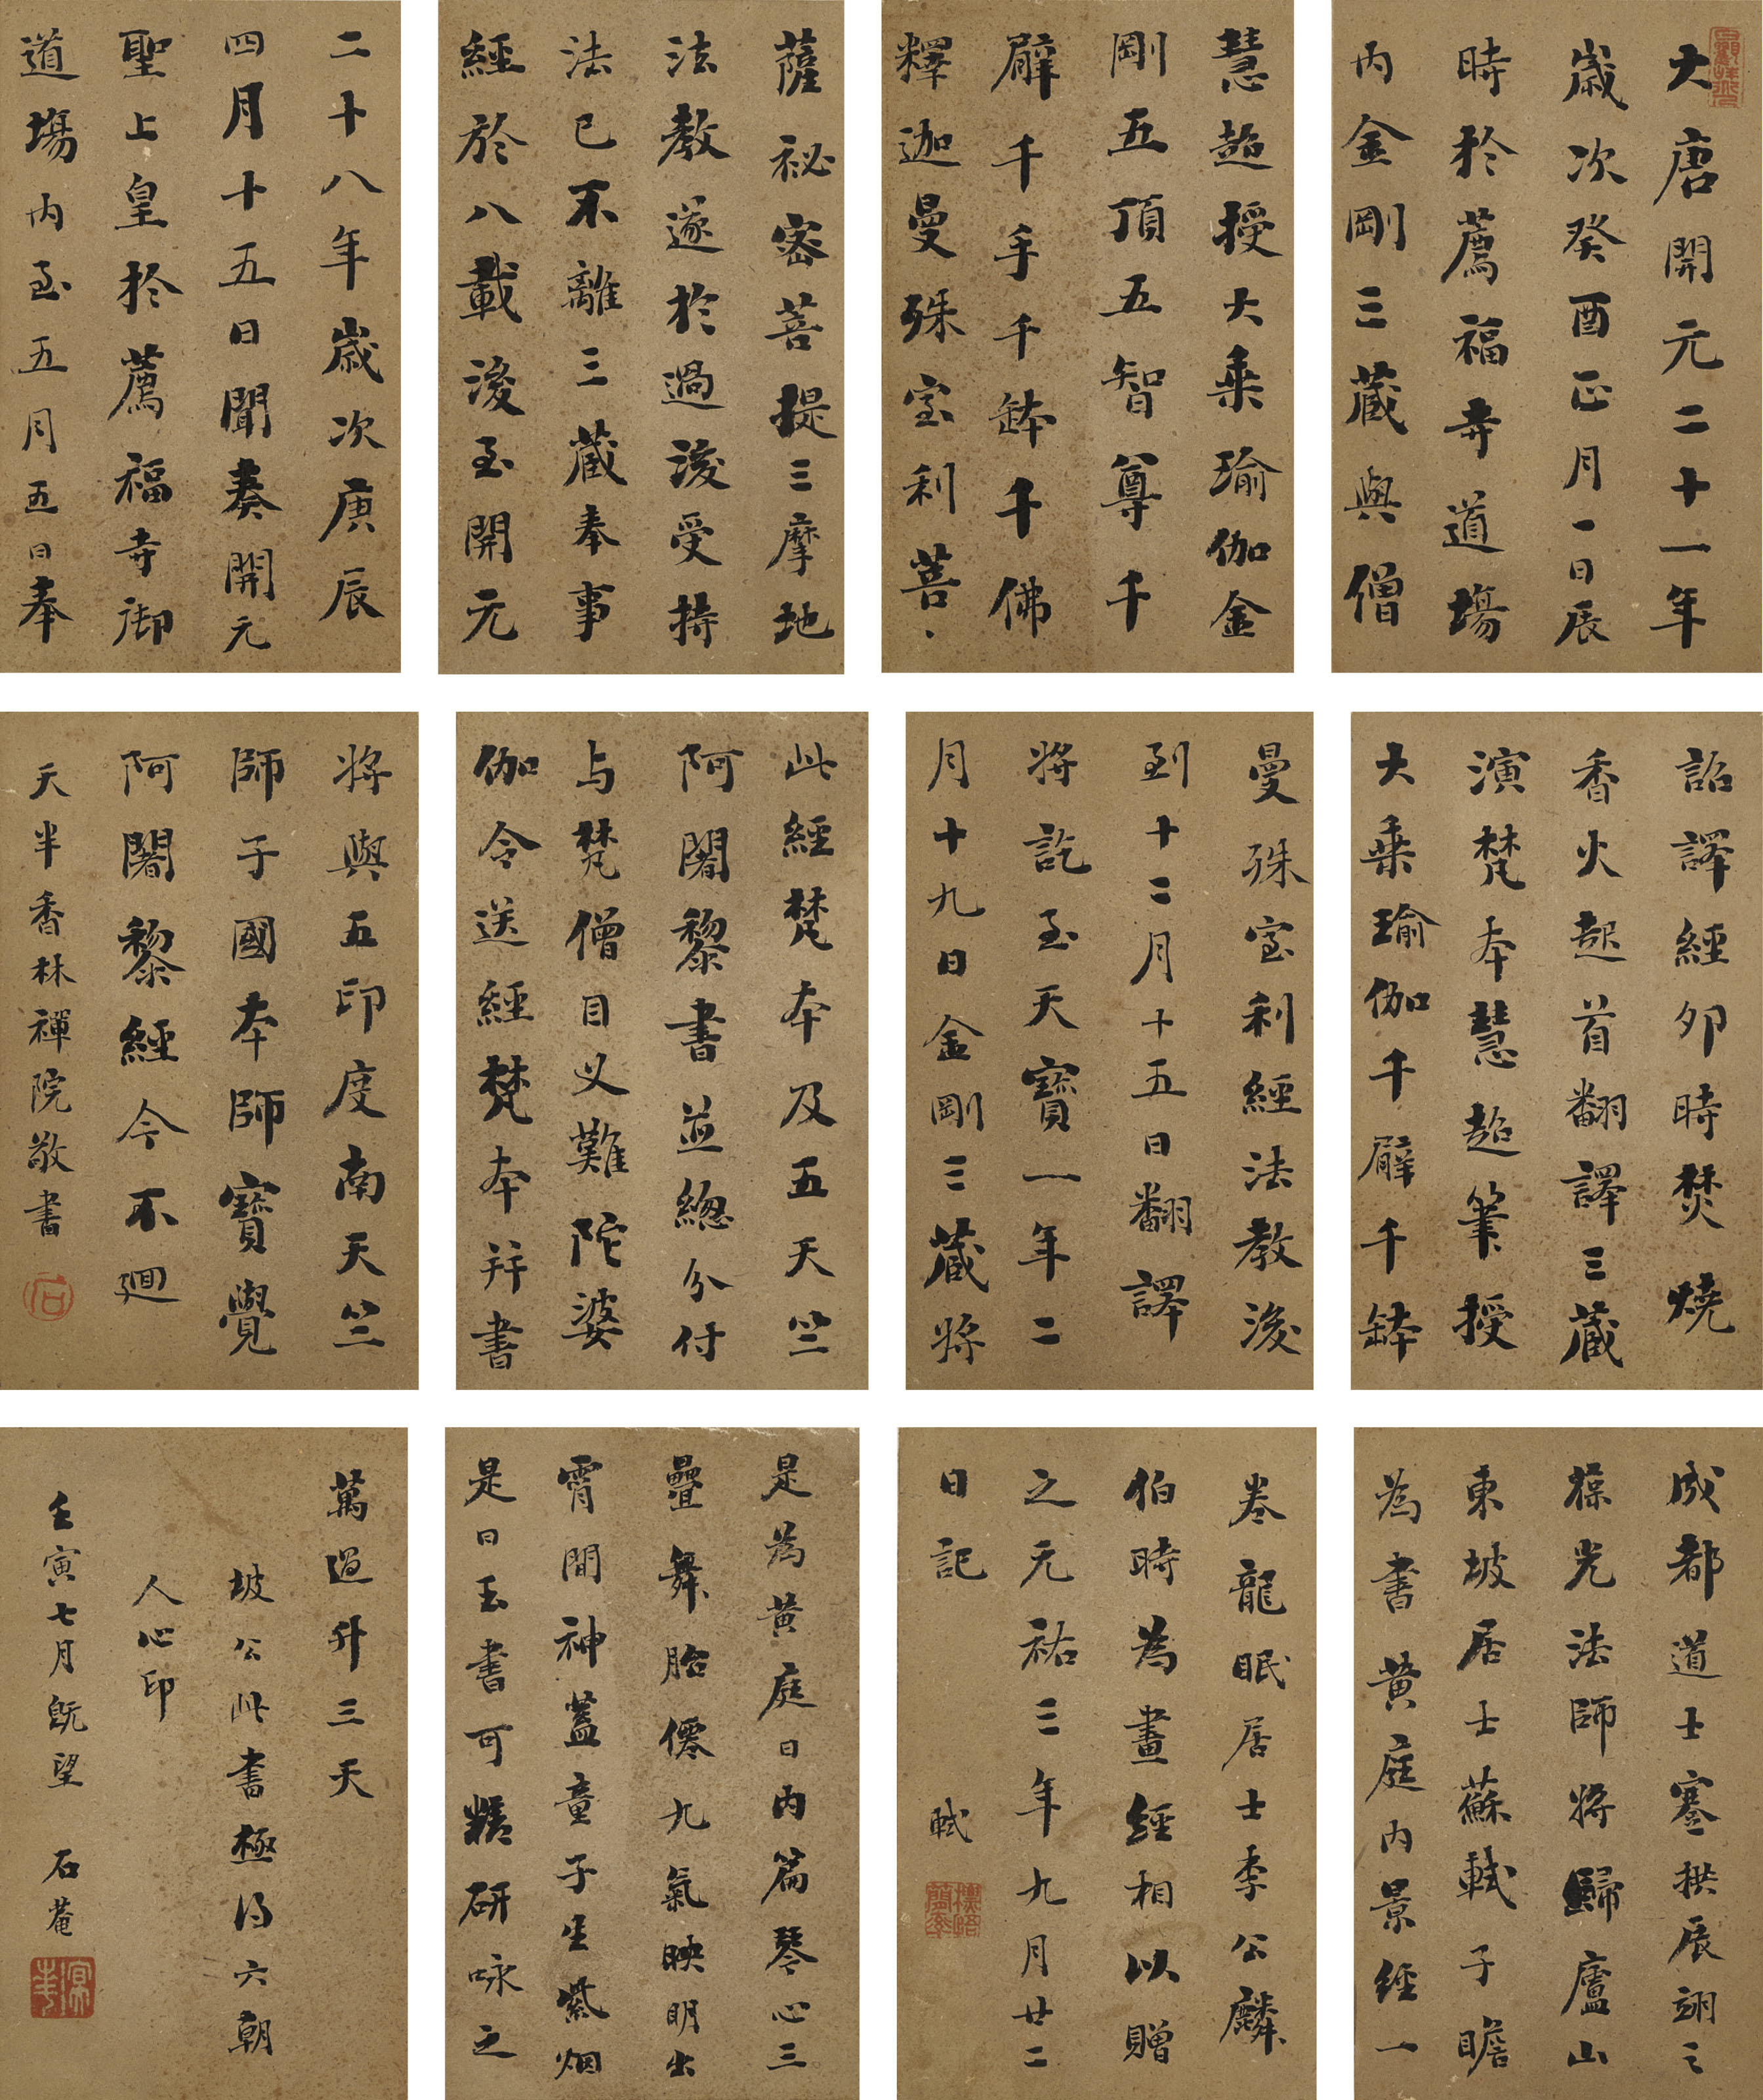 大唐開元二十一年
歲次癸酉正月一日辰
時於薦福寺道場
內金剛三藏與僧
慧超授大乘瑜伽金
剛五頂五智尊千
臂千手千鉢千佛
釋迦曼殊室利菩
薩秘密菩提三摩地
法教遂於過後受持
法已不離三藏奉事
經於八載後至開元
二十八年歲次庚辰
四月十五日聞奏開元
聖上皇於薦福寺御
道場內至五月五日奉
詔譯經卯時焚燒
香火起首翻譯三藏
演梵本慧超筆授
大乘瑜伽千臂千鉢
曼殊室利經法教後
到十二月十五日翻譯
將訖至天寶一年二
月十九日金剛三藏將
此經梵本及五天竺
阿闍黎書並總分付
与梵僧目叉難陀婆
伽令送經梵本并書
將與五印度南天竺
師子國本師寶覺
阿闍黎經今不迴
天半香林禪院敬書
石
成都道士蹇拱辰翊之
葆光法師將歸廬山
東坡居士蘇軾子瞻
為書黃庭內景經一
卷龍眠居士李公麟
伯時為畫經相以贈
之元祐三年九月廿二
日記 軾
是為黃庭曰內篇琴心三
疊舞胎僊九氣映明出
霄間神蓋童子生紫烟
是曰玉書可精研咏之
萬過升三天
坡公此書極得六朝
人心印
壬寅七月既望 石菴